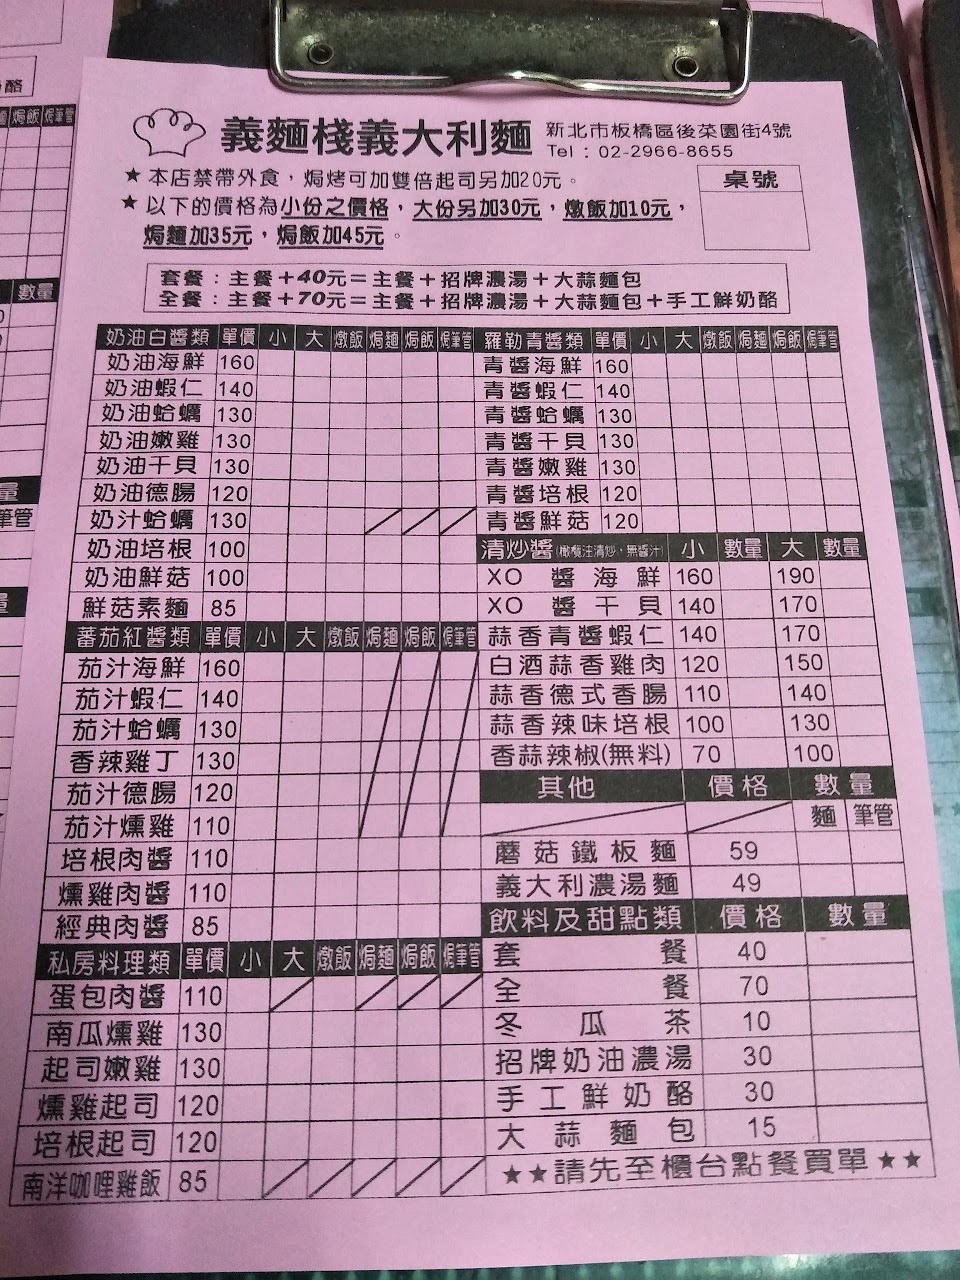 義麵棧義大利麵 新北市板橋區後菜園街4號
Tel：02-2966-8655
★本店禁帶外食，焗烤可加雙倍起司另加20元。
桌號
★以下的價格為小份之價格，大份另加30元，燉飯加10元，
焗麵加35元，焗飯加45元。
套餐：主餐+40元=主餐+招牌濃湯+大蒜麵包
全餐：主餐+70元=主餐+招牌濃湯+大蒜麵包+手工鮮奶酪
奶油白醬類 單價 小 大 燉飯 焗麵 焗飯 焗筆管
奶油海鮮 160
奶油蝦仁 140
奶油蛤蠣 130
奶油嫩雞 130
奶油干貝 130
奶油德腸 120
奶汁蛤蠣 130
奶油培根 100
奶油鮮菇 100
鮮菇素麵 85
蕃茄紅醬類 單價 小 大 燉飯 焗麵 焗飯 焗筆管
茄汁海鮮 160
茄汁蝦仁 140
茄汁蛤蠣 130
香辣雞丁 130
茄汁德腸 120
茄汁燻雞 110
培根肉醬 110
燻雞肉醬 110
經典肉醬 85
私房料理類 單價 小 大 燉飯 焗麵 焗飯 焗筆管
蛋包肉醬 110
南瓜燻雞 130
起司嫩雞 130
燻雞起司 120
培根起司 120
南洋咖哩雞飯 85
羅勒青醬類 單價 小 大 燉飯 焗麵 焗飯 焗筆管
青醬海鮮 160
青醬蝦仁 140
青醬蛤蠣 130
青醬干貝 130
青醬嫩雞 130
青醬培根 120
青醬鮮菇 120
清炒醬(橄欖油清炒，無醬汁) 小 數量 大 數量
XO醬海鮮 160 190
XO醬干貝 140 170
蒜香青醬蝦仁 140 170
白酒蒜香雞肉 120 150
蒜香德式香腸 110 140
蒜香辣味培根 100 130
香蒜辣椒(無料) 70 100
其他 價格 數量
麵 筆管
蘑菇鐵板麵 59
義大利濃湯麵 49
飲料及甜點類 價格 數量
套餐 40
全餐 70
冬瓜茶 10
招牌奶油濃湯 30
手工鮮奶酪 30
大蒜麵包 15
★★請先至櫃台點餐買單★★